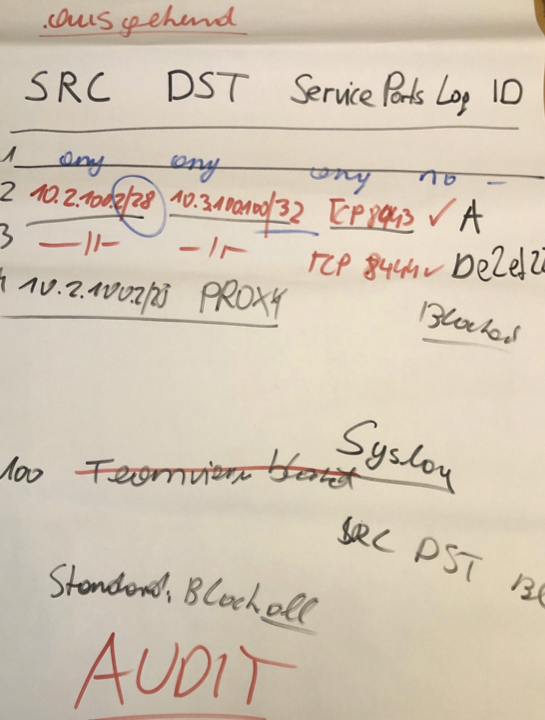 ausgehend
SRC DST Service Ports Log ID
1 any any any no -
2 10.2.100.2/28 10.3.100.100/32 TCP 8443 ✓ A
3 —〃— —〃— TCP 8444 ✓
10.2.100.2/25 PROXY
Blocked
100 Teamviewer blockiert
Syslog
SRC DST
Standard: Block all
AUDIT